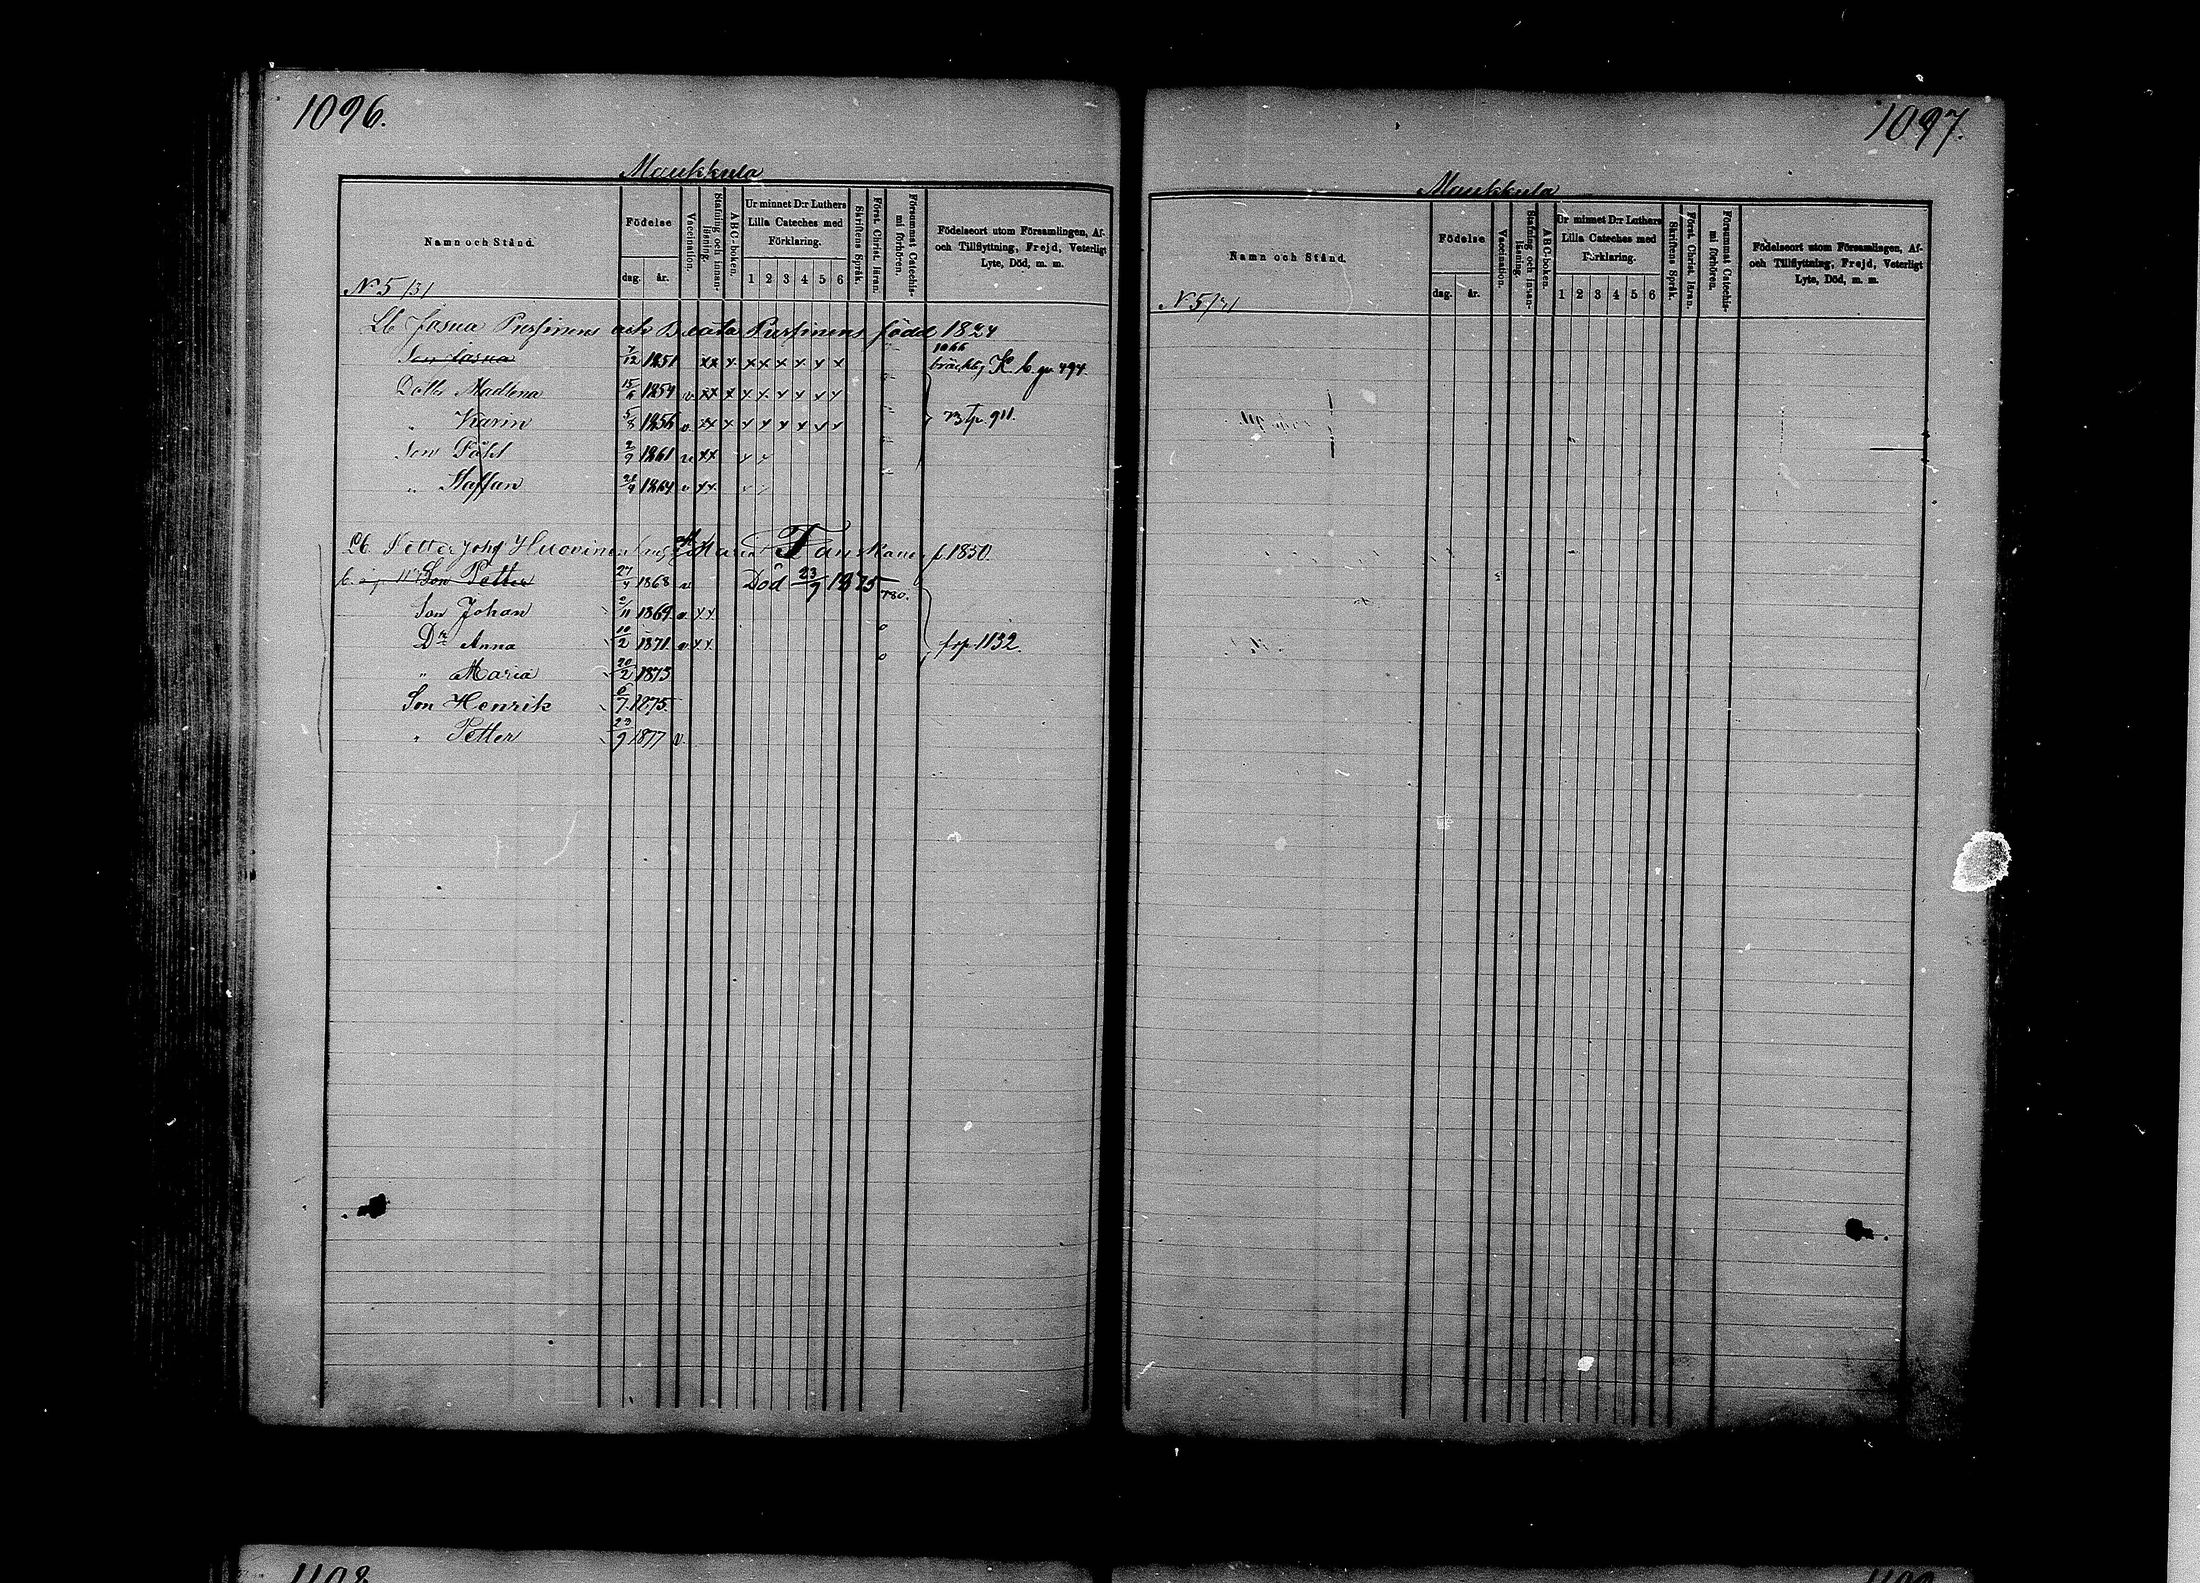 1096.
Maukkula
Namn och Stånd.
Födelse
dag. år.
Vaccination.
Stafning och innanläsning.
ABC-boken.
Ur minnet D:r Luthers Lilla Cateches med Förklaring.
1 2 3 4 5 6
Skriftens Språk.
Först. Christ. läran.
Försummat Catechismi förhören.
Födelseort utom Församlingen, Af- och Tillflyttning, Frejd, Veterligt Lyte, Död, m. m.
N 5 /31
Lb Josua Pursinens och Beata Pursinens född 1824
Son Josua 7/12 1851 xx x x x x x x x K. b. 494.
Dottr Madlena 15/6 1854 v xx x x x x x x x
" Karin 5/8 1856 v xx x x x x x x x 911.
Son Påhl 2/9 1861 v xx x x
" Staffan 1864 v xx
Lb. Petter Huovinen Maria Tanskanen f. 1850.
Son Petter 27/4 1868 v Död 23/7 1875
780.
Son Johan 2/11 1869 v x x
Dr Anna 10/2 1871 v x x frp 1132.
" Maria 20/2 1873
Son Henrik 6/7 1875
" Petter 23/9 1877 v.
1097.
Maukkula
Namn och Stånd.
Födelse
dag. år.
Vaccination.
Stafning och innanläsning.
ABC-boken.
Ur minnet D:r Luthers Lilla Cateches med Förklaring.
1 2 3 4 5 6
Skriftens Språk.
Först. Christ. läran.
Försummat Catechismi förhören.
Födelseort utom Församlingen, Af- och Tillflyttning, Frejd, Veterligt Lyte, Död, m. m.
N 5/31